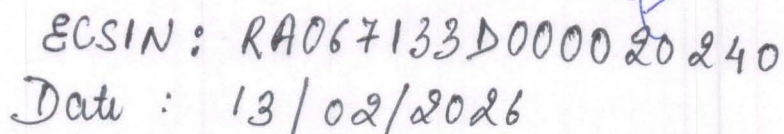 ECSIN: RA067133D000020240
Date : 13/02/2026